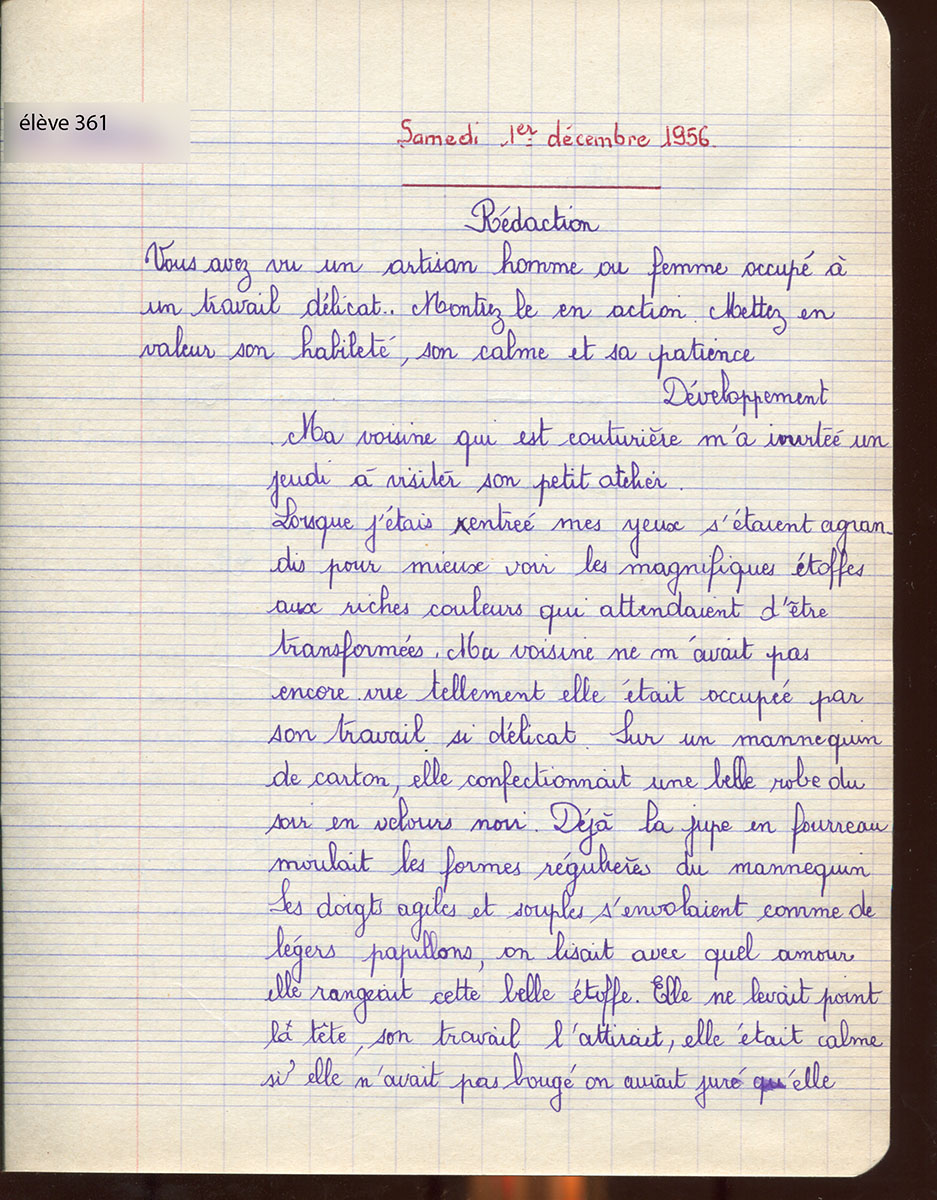 élève 361
Samedi 1er décembre 1956.
Rédaction
Vous avez vu un artisan homme ou femme occupé à
un travail délicat.. Montrez le en action. Mettez en
valeur son habileté, son calme et sa patience
Développement
Ma voisine qui est couturière m'a invitée un
jeudi à visiter son petit atelier.
Lorsque j'étais rentreé mes yeux s'étaient agran-
dis pour mieux voir les magnifiques étoffes
aux riches couleurs qui attendaient d'être
transformées. Ma voisine ne m'avait pas
encore vue tellement elle était occupée par
son travail si délicat. Sur un mannequin
de carton, elle confectionnait une belle robe du
soir en velours noir. Déjà la jupe en fourreau
moulait les formes régulières du mannequin
Ses doigts agiles et souples s'envolaient comme de
légers papillons, on lisait avec quel amour
elle rangeait cette belle étoffe. Elle ne levait point
la tête, son travail l'attirait, elle était calme
si elle n'avait pas bougé on aurait juré qu'elle